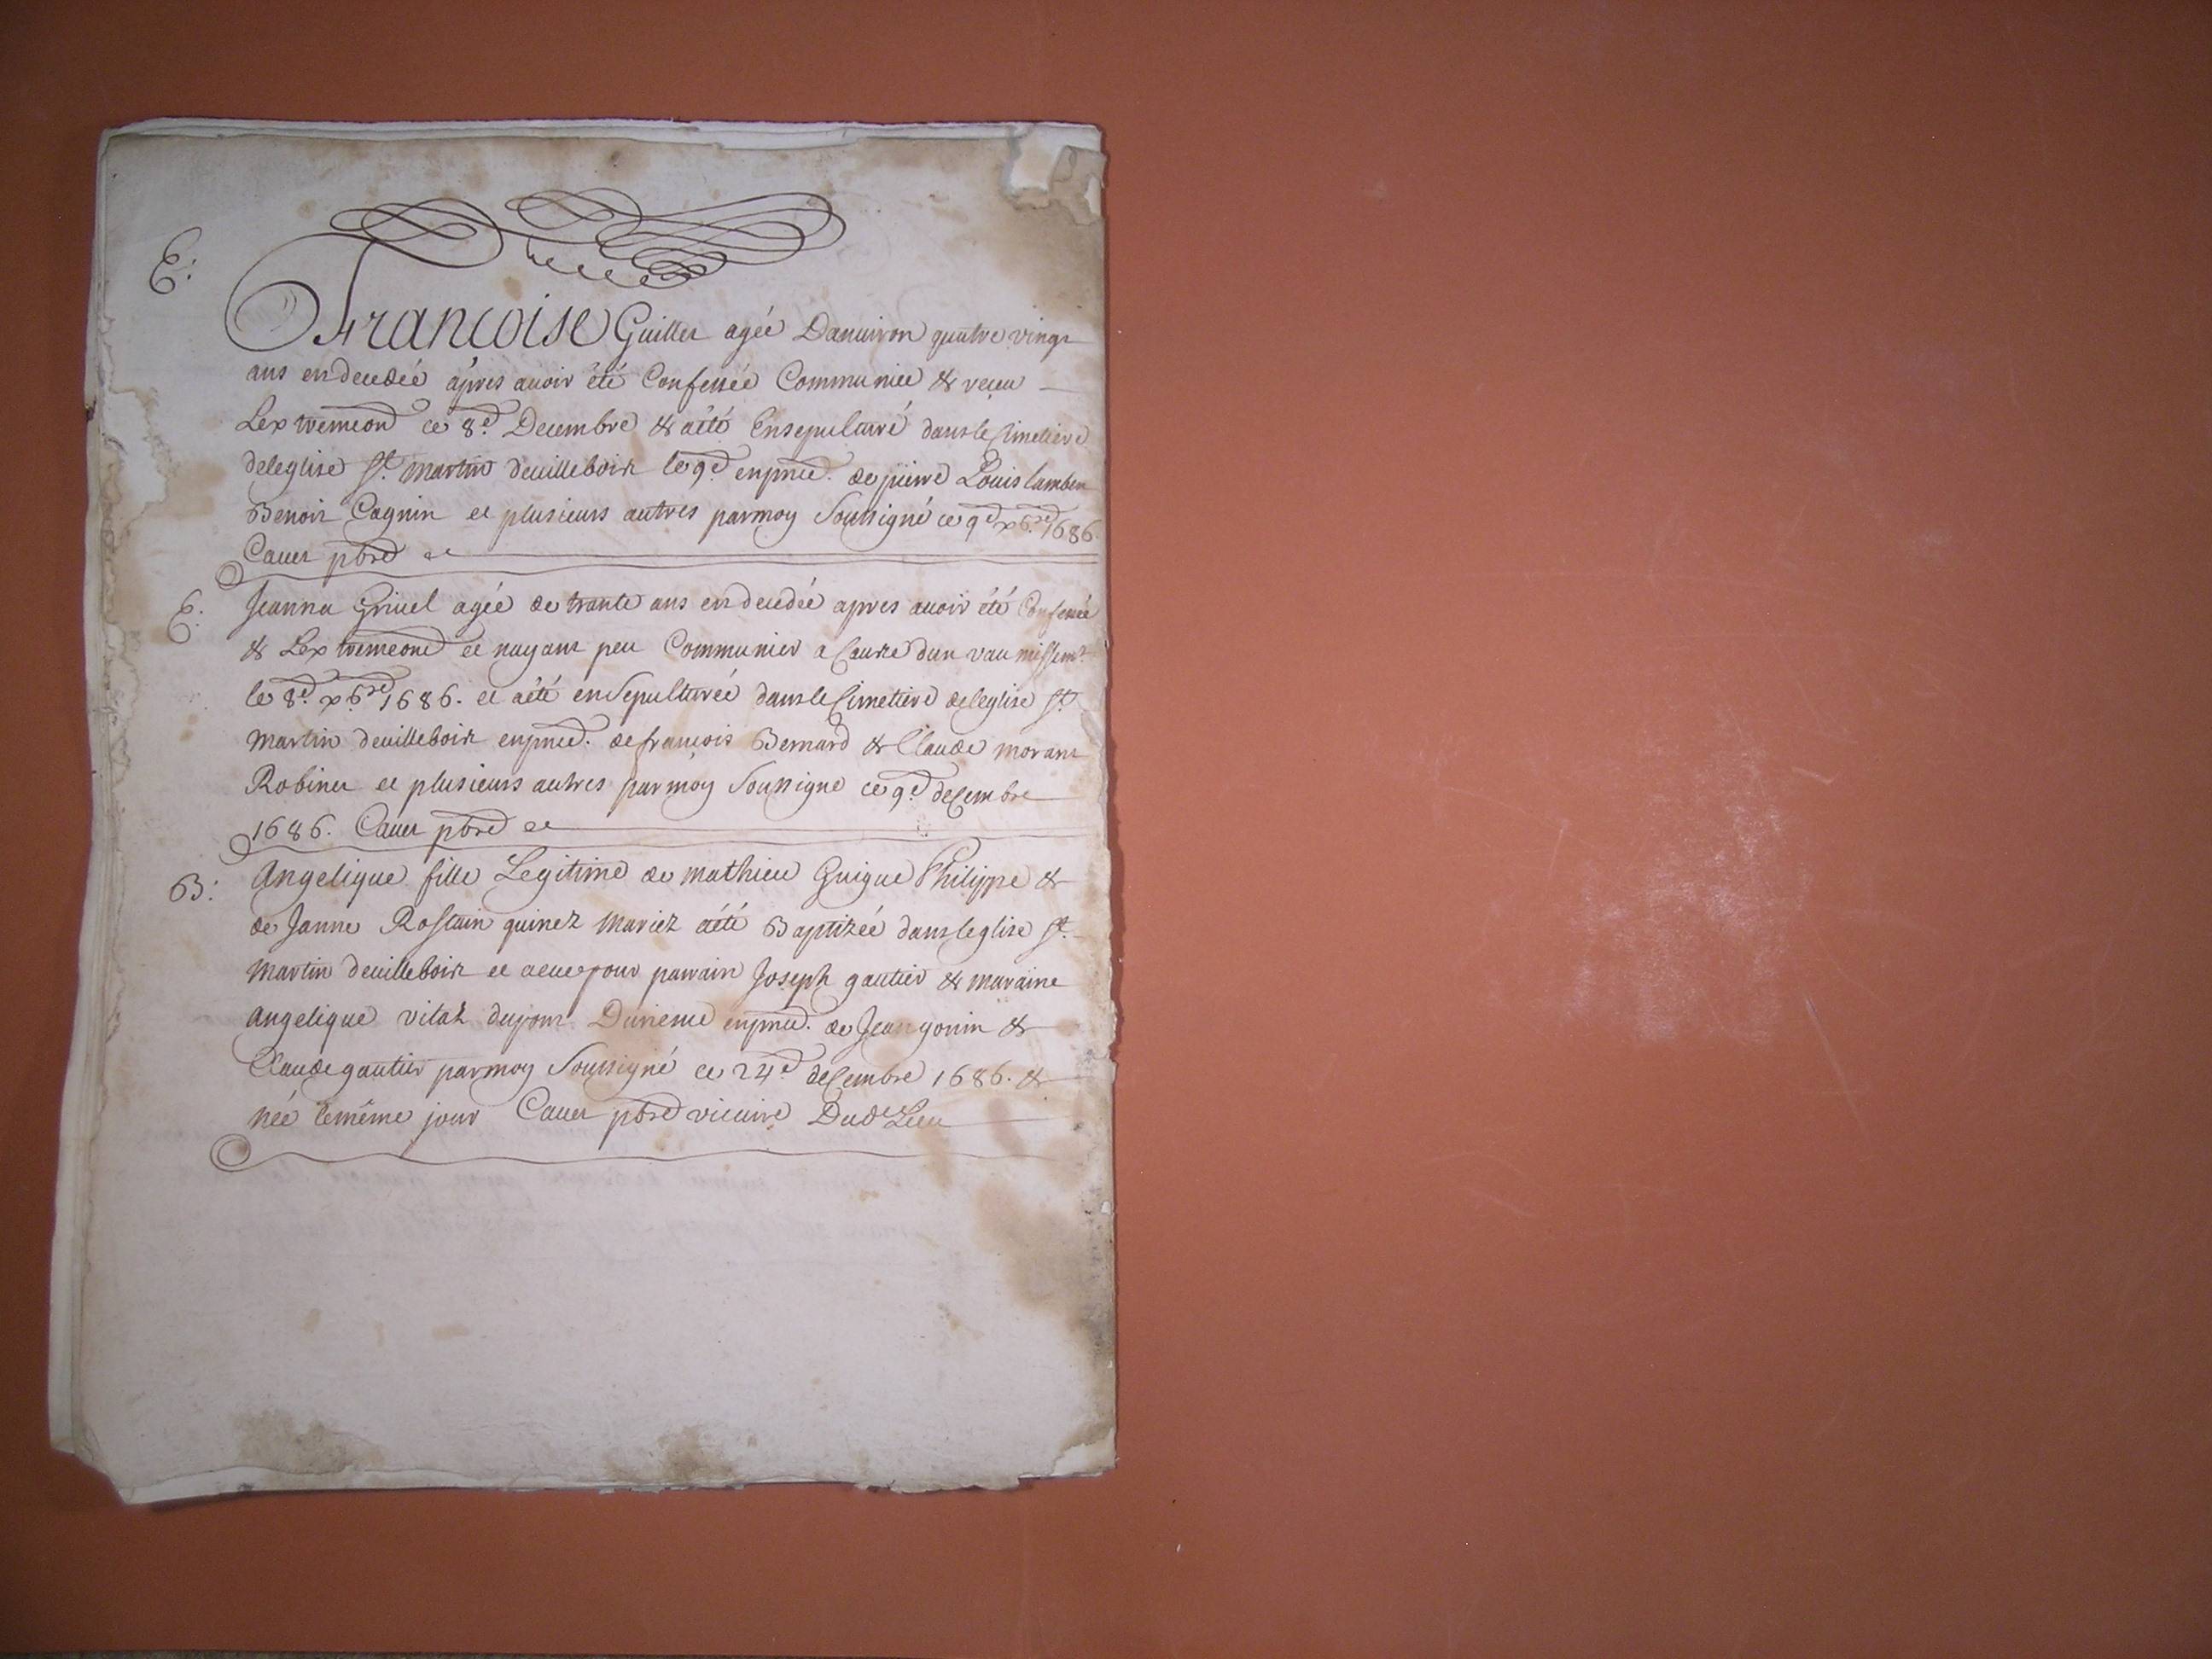 E:
Francoise Guillet agée Danuiron quatre vingt
ans en decedéé apres auoir été Confessée Communiee & receu
Lextremeon ce 8e Decembre & aété Ensepulturé dans le Cimetiere
deleglise St. martin deuilleboix le 9e enpnce. de pierre Louis lambert
Benoit Cagnin et plusieurs autres parmoy Soussigné ce 9e xbre 1686.
Cauet pbre
E:
Jeanna Griuel agée de trante ans en decedée apres auoir été Confessée
& Lextremeone et nayant peu Communier a Cause dun vaumissemt
le 8e xbre 1686. et aété enSepulturéé dans le Cimetiere deleglise St
martin deuilleboix enpnce. de francois Bernard & Claude morant
Robinet et plusieurs autres parmoy Soussigne ce 9e deCembre
1686. Cauet pbre
B:
Angelique fille Legitime de mathieu Guigue Philippe &
de Janne Rostain quinez mariez aété Baptizéé dans leglise St.
martin deuilleboix et aeue pour parrain Joseph gautier & maraine
angelique vitaz dupont enpnce. de Jean gonin &
Claude gautier parmoy Soussigné ce 24e deCembre 1686. &
née lemême jour Cauet pbre vicaire Dud Lieu